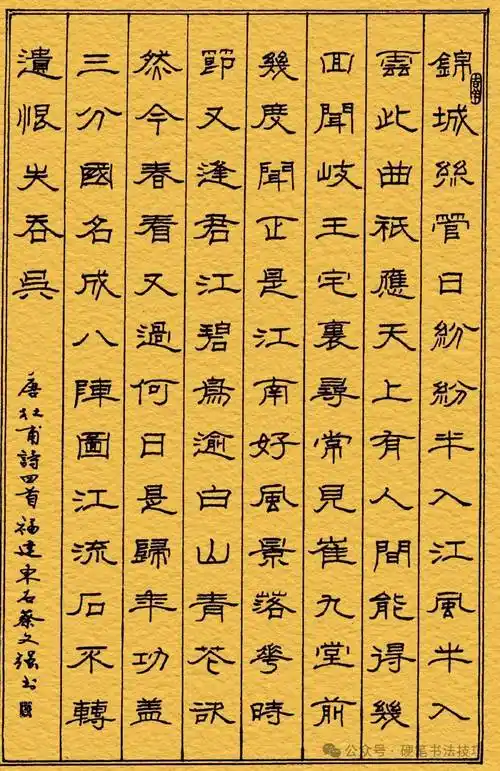 錦城絲管日紛紛半入江風半入
雲此曲祇應天上有人間能得幾
回聞岐王宅裏尋常見崔九堂前
幾度聞正是江南好風景落花時
節又逢君江碧鳥逾白山青花欲
然今春看又過何日是歸年功蓋
三分國名成八陣圖江流石不轉
遺恨失吞吳
唐杜甫詩四首福建東石蔡文強書
公众号·硬笔书法技巧